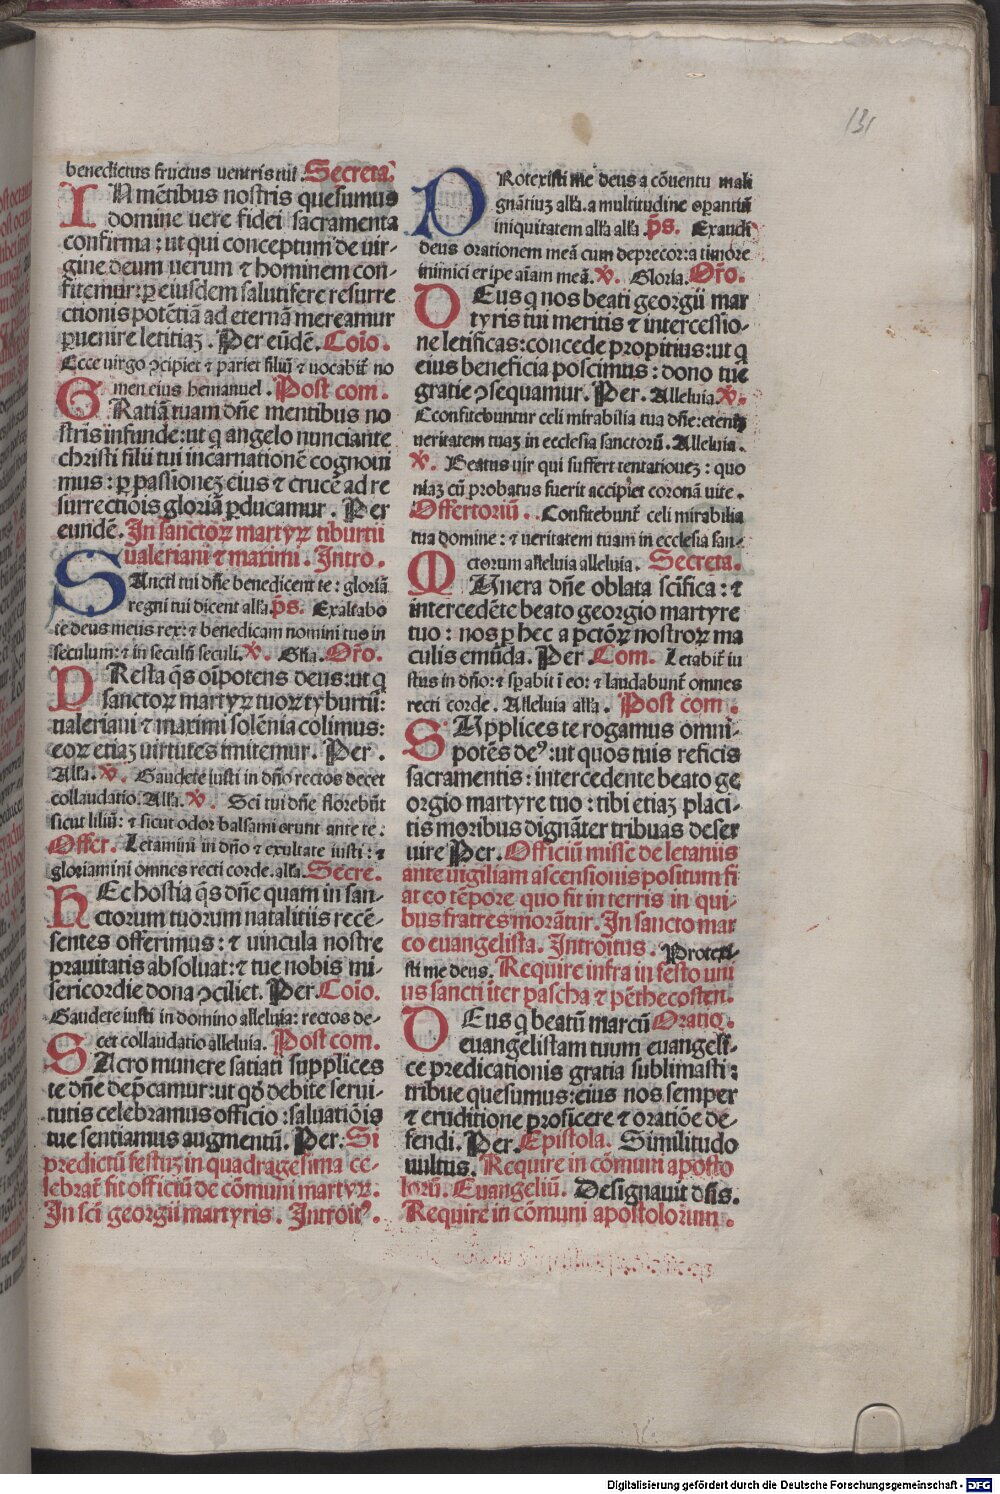 131
benedictus fructus ventris tui. Secreta.
IN mētibus nostris quesumus
domine vere fidei sacramenta
confirma: ut qui conceptum de vir-
gine deum verum ⁊ hominem con-
fitemur: ꝑ eiusdem salutifere resurre
ctionis potētiā ad eternā mereamur
ꝑuenire letitiaꝫ. Per eūdē. Coīo.
Ecce virgo ↄcipiet ⁊ pariet filiū ⁊ vocabit̄ no
men eius hemanuel. Post com.
GRatiā tuam dn̄e mentibus no
stris infunde: ut q angelo nunciante
christi filii tui incarnationē cognoui
mus: ꝑ passioneꝫ eius ⁊ crucē ad re
surrectiōis gloriā ꝑducamur. Per
eundē. In sanctoꝝ martyꝝ tiburtii
ualeriani ⁊ maximi. Intro.
SAncti tui dn̄e benedicent te: gloriā
regni tui dicent alľa. ps. Exaltabo
te deus meus rex: ⁊ benedicam nomini tuo in
seculum: ⁊ in seculū seculi. ℣. Glīa. Oŕo.
PResta q̄s oīpotens deus: ut q
sanctoꝝ martyꝝ tuoꝝ tyburtii:
ualeriani ⁊ maximi solēnia colimus:
eoꝝ etiaꝫ uirtutes imitemur. Per.
Alľa. ℣. Gaudete iusti in dn̄o rectos decet
collaudatio. Alľa. ℣. Sci tui dn̄e florebūt
sicut liliū: ⁊ sicut odor balsami erunt ante te:
Offer. Letamini in dn̄o ⁊ exultate iusti: ⁊
gloriamini omnes recti corde. alľa. Secre.
HEc hostia q̄s dn̄e quam in san-
ctorum tuorum natalitiis recē-
sentes offerimus: ⁊ uincula nostre
prauitatis absoluat: ⁊ tue nobis mi-
sericordie dona ↄciliet. Per. Coīo.
Gaudete iusti in domino alleluia: rectos de-
cet collaudatio alleluia. Post com.
SAcro munere satiati supplices
te dn̄e dep̄camur: ut qd̄ debite serui-
tutis celebramus officio: saluatiōis
tue sentiamus augmentū. Per. Si
predictū festuꝫ in quadragesima ce-
lebrat̄ fit officiū de cōmuni martyꝝ.
In scī georgii martyris. Introitꝰ.
PRotexisti me deus a cōuentu mali
gnātiuꝫ alľa. a multitudine oꝑantiū
iniquitatem alľa alľa. ps. Exaudi
deus orationem meā cum deprecor: a timore
inimici eripe aīam meā. ℣. Gloria. Oŕo.
DEus q nos beati georgii mar
tyris tui meritis ⁊ intercessio-
ne letificas: concede propitius: ut q
eius beneficia poscimus: dono tue
gratie ↄsequamur. Per. Alleluia. ℣.
Cconfitebuntur celi mirabilia tua dn̄e: etenī
ueritatem tuaꝫ in ecclesia sanctorū. Alleluia.
℣. Beatus uir qui suffert tentationeꝫ: quo
niaꝫ cū probatus fuerit accipiet coronā uite.
Offertoriū. Confitebunt̄ celi mirabilia
tua domine: ⁊ veritatem tuam in ecclesia san-
ctorum alleluia alleluia. Secreta.
MUnera dn̄e oblata scīfica: ⁊
intercedēte beato georgio martyre
tuo: nos ꝑ hec a pctōꝝ nostroꝝ ma
culis emūda. Per Com. Letabit̄ iu
stus in dn̄o: ⁊ sꝑabit ī eo: ⁊ laudabunt̄ omnes
recti corde. Alleluia alľa. Post com.
SUpplices te rogamus omni-
potēs deꝰ: ut quos tuis reficis
sacramentis: intercedente beato ge
orgio martyre tuo: tibi etiaꝫ placi-
tis moribus dignāter tribuas deser
uire Per. Officiū misse de letaniis
ante uigiliam ascensionis positum fi
at eo tēpore quo fit in terris in qui-
bus fratres morātur. In sancto mar
co euangelista. Introitus. Protexi-
sti me deus. Require infra in festo uni
us sancti iter pascha ⁊ pēthecosten.
DEus q beatū marcū Oratio.
euangelistam tuum euangeli-
ce predicationis gratia sublimasti:
tribue quesumus: eius nos semper
⁊ eruditione proficere ⁊ oratiōe de-
fendi. Per. Epistola. Similitudo
uultus. Require in cōmuni aposto
lorū. Euangeliū. Designauit dn̄s.
Require in cōmuni apostolorum.
Digitalisierung gefördert durch die Deutsche Forschungsgemeinschaft - DFG